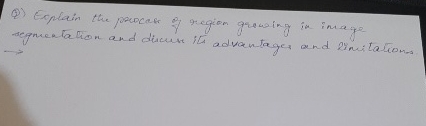 Q) Explain the process of region growing in image
segmentation and discuss its advantages and limitations.
→